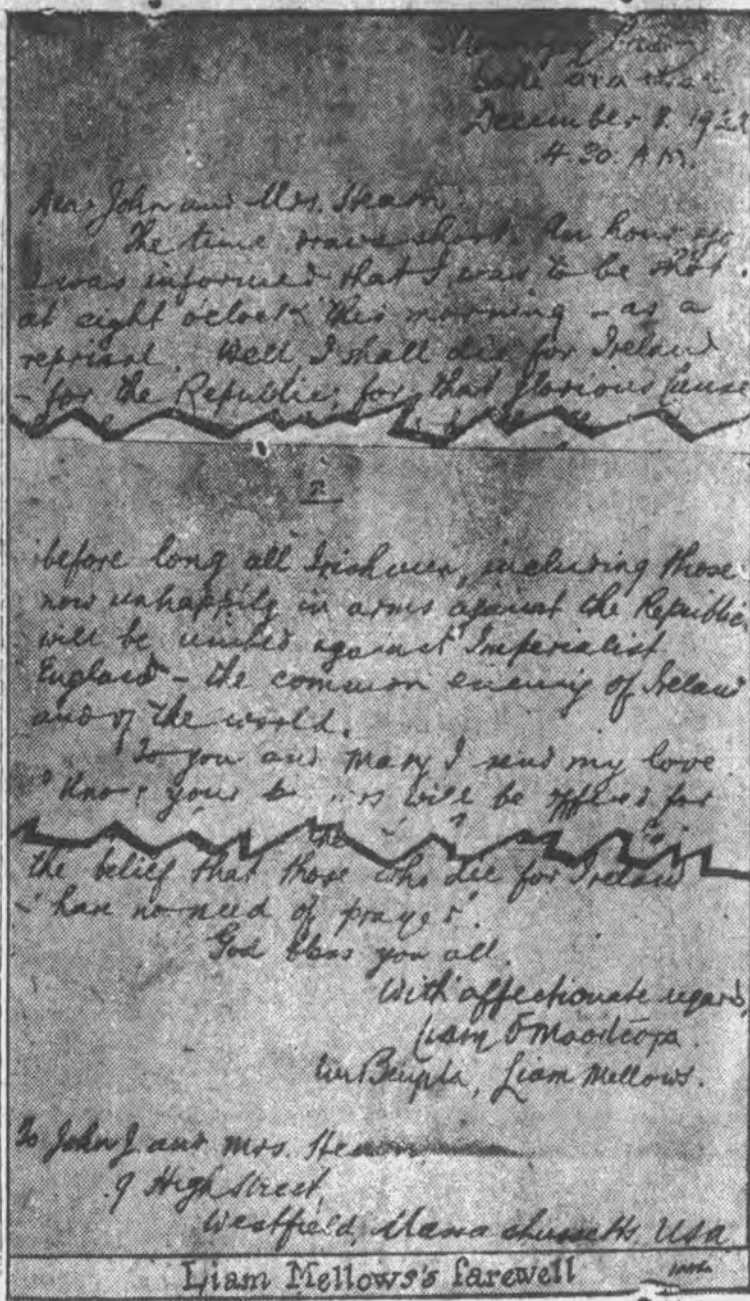 Mountjoy Prison
December 8. 1922
4.30 A.M.
Dear John and Mrs. Hearn
The time draws short. An hour ago
I was informed that I was to be shot
at eight o'clock this morning - as a
reprisal. Well, I shall die for Ireland
- for the Republic; for that glorious cause
2
before long all Irishmen, including those
now unhappily in arms against the Republic,
will be united against Imperialist
England - the common enemy of Ireland
and of the world.
To you and Mary I send my love
I know your will be offered for
the belief that those who die for Ireland
have no need of prayer".
God bless you all.
With affectionate regards,
Liam
Liam Mellows.
To John J. and Mrs. Hearn
9 High Street,
Westfield, Massachussetts, USA
Liam Mellows's farewell